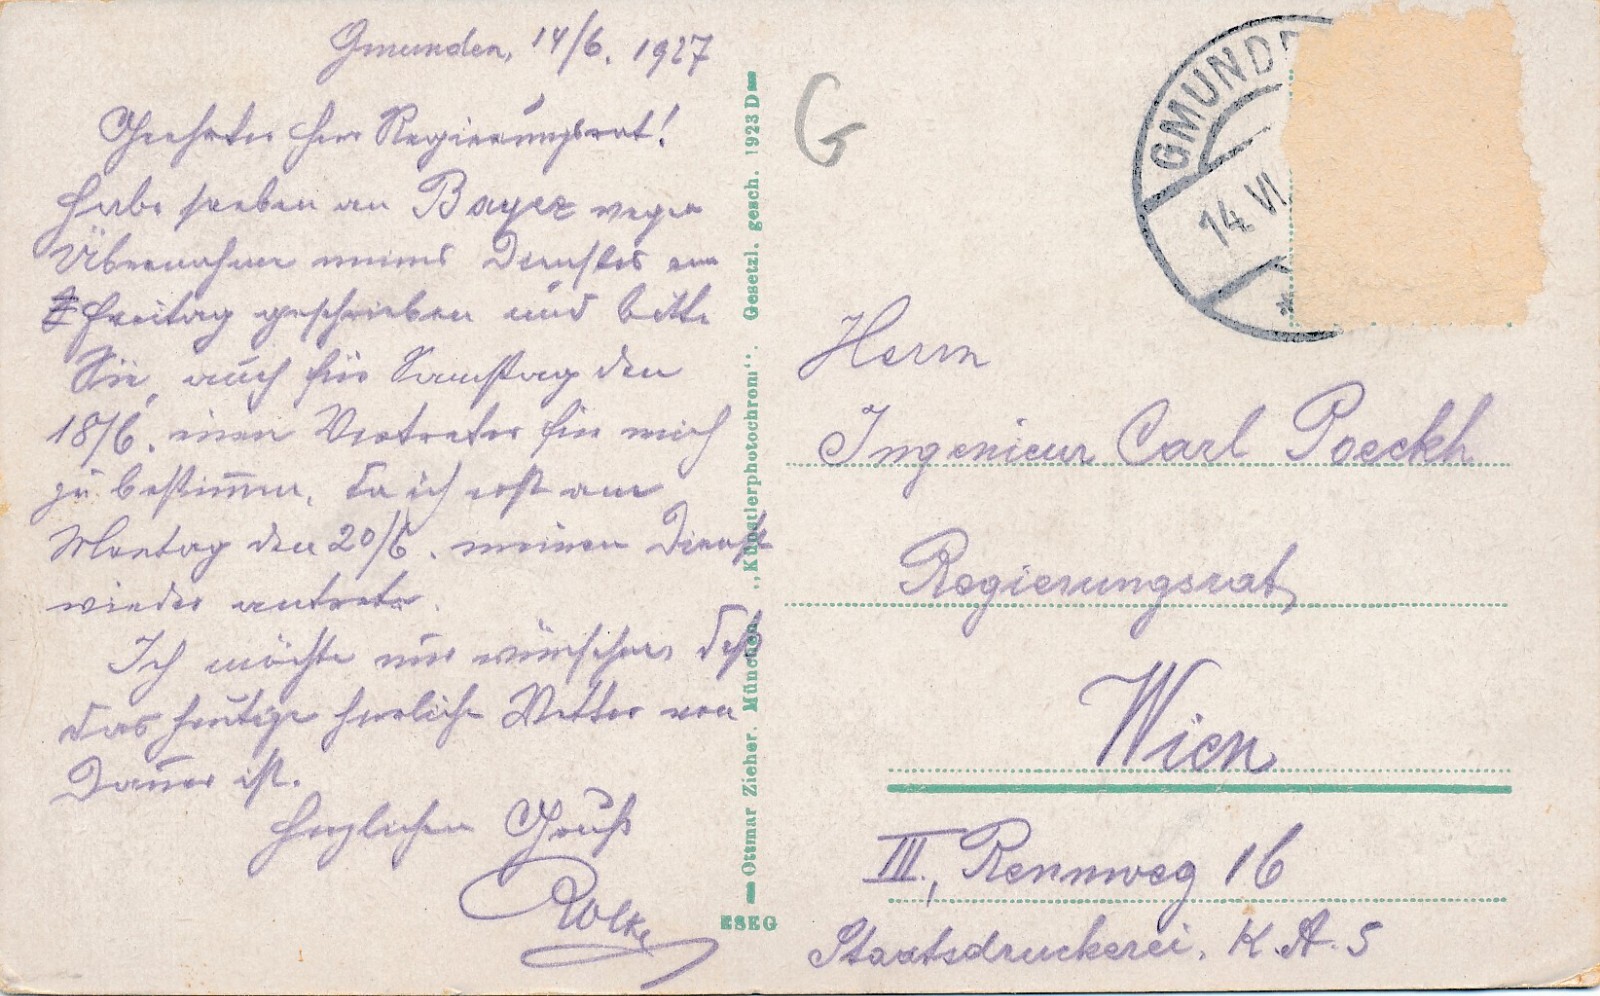 Gmunden, 14/6. 1927
Geehrter Herr Regierungsrat!
Habe soeben an Bayer wegen
Übernahme meines Dienstes am
Freitag geschrieben und bitte
Sie, auch für Samstag den
18/6. einen Vertreter für mich
zu bestimmen, da ich erst am
Montag den 20/6. meinen Dienst
wieder antrete.
Ich möchte nur wünschen, daß
das heutige herrliche Wetter von
Dauer ist.
Herzlichen Gruß
Ottmar Zieher. München. „Künstlerphotochrom". Gesetzl. gesch. 1923 D
ESEG
G
GMUND
14. VI
Herrn
Ingenieur Carl Poeckh
Regierungsrat
Wien
III., Rennweg 16
Staatsdruckerei. K. A. 5